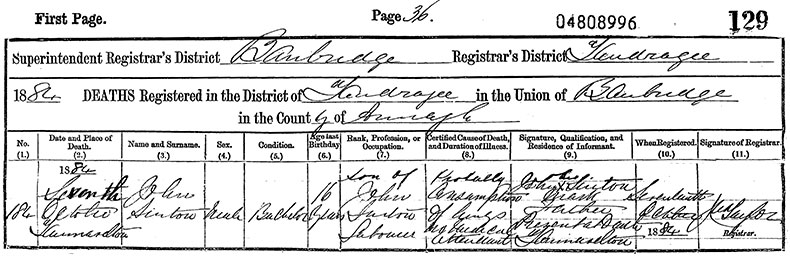 First Page. Page 36. 04808996 129
Superintendent Registrar's District Banbridge Registrar's District Tandragee
1884 DEATHS Registered in the District of Tandragee in the Union of Banbridge
in the County of Armagh
No. (1.) Date and Place of Death. (2.) Name and Surname. (3.) Sex. (4.) Condition. (5.) Age last Birthday (6.) Rank, Profession, or Occupation. (7.) Certified Cause of Death, and Duration of Illness. (8.) Signature, Qualification, and Residence of Informant. (9.) When Registered. (10.) Signature of Registrar. (11.)
1884
Seventh John 16 Son of Probably John X Sinton Seventeenth
October Sinton Male Bachelor years John Consumption his mark October
Sinton of lungs Father 1884
Labourer no medical Present at Death
attendant
Registrar.